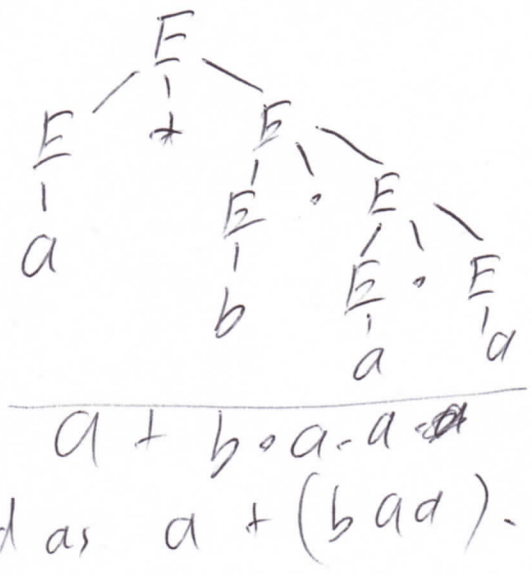 E
E + E
a E · E
b E · E
a a
a + b · a · a
as a + (baa).